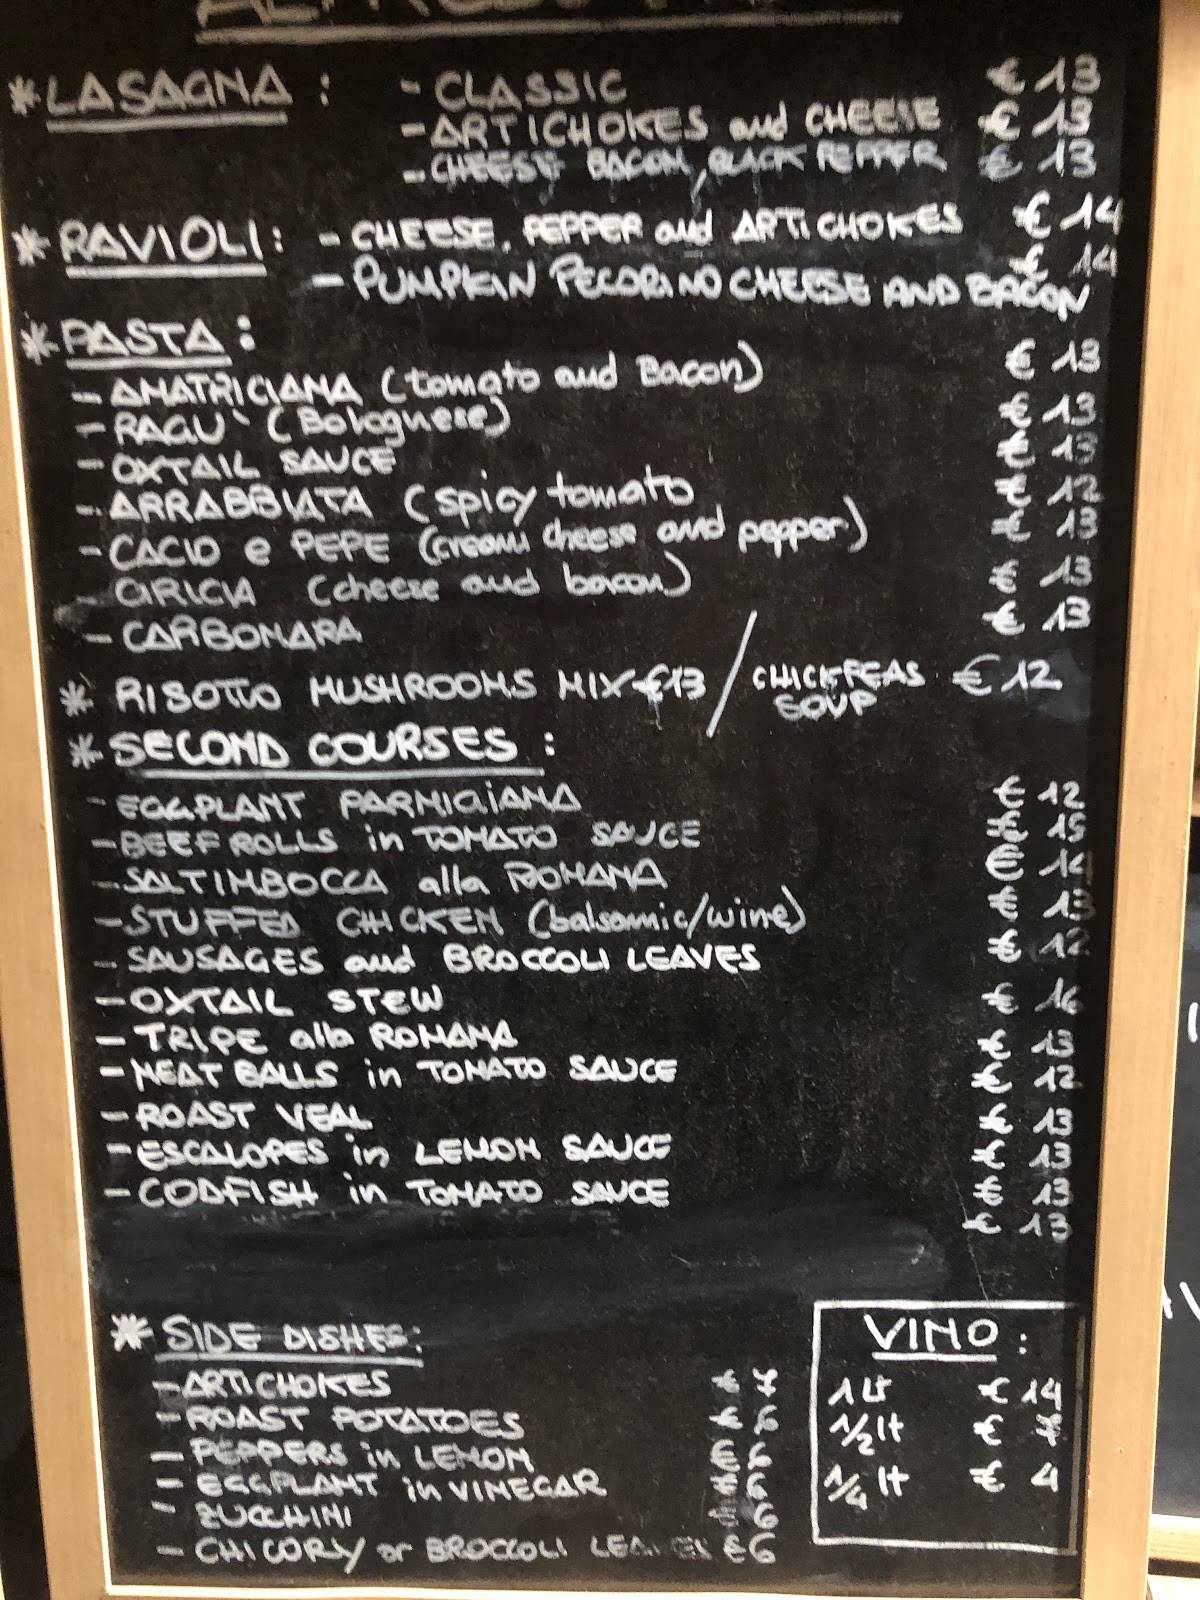 *LASAGNA : - CLASSIC € 13
- ARTICHOKES and CHEESE € 13
- CHEESE BACON, BLACK PEPPER € 13
* RAVIOLI : - CHEESE, PEPPER and ARTICHOKES € 14
- PUMPKIN PECORINO CHEESE AND BACON € 14
* PASTA :
- AMATRICIANA (tomato and Bacon) € 13
- RAGU' (Bolognese) € 13
- OXTAIL SAUCE € 13
- ARRABBIATA (spicy tomato € 12
- CACIO e PEPE (cream cheese and pepper) € 13
- GRICIA (cheese and bacon) € 13
- CARBONARA € 13
* RISOTTO MUSHROOMS MIX €13 / CHICKPEAS SOUP € 12
* SECOND COURSES :
- EGGPLANT PARMIGIANA € 12
- BEEF ROLLS in TOMATO SAUCE € 15
- SALTIMBOCCA alla ROMANA € 14
- STUFFED CHICKEN (balsamic/wine) € 13
- SAUSAGES and BROCCOLI LEAVES € 12
- OXTAIL STEW € 16
- TRIPE alla ROMANA € 13
- MEAT BALLS in TOMATO SAUCE € 12
- ROAST VEAL € 13
- ESCALOPES in LEMON SAUCE € 13
- CODFISH in TOMATO SAUCE € 13
€ 13
* SIDE DISHES:
- ARTICHOKES €
- ROAST POTATOES € 6
- PEPPERS in LEMON € 6
- EGGPLANT in VINEGAR € 6
- ZUCCHINI 6
- CHICORY or BROCCOLI LEAVES €6
VINO :
1 Lt € 14
1/2 lt €
1/4 lt € 4